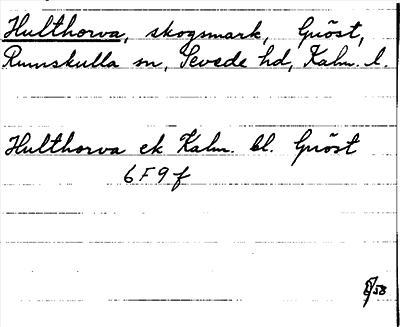 Hulthorva, skogsmark, Gnöst,
Rumskulla sn, Sevede hd, Kalm. l.
Hulthorva ek Kalm. bl. Gnöst
6F9f
/58